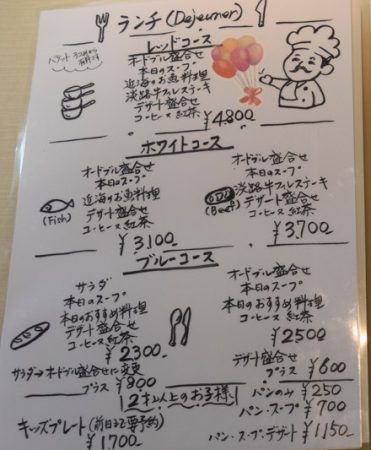 ランチ (Dejeuner)
レッドコース
オードブル盛合せ
本日のスープ
近海のお魚料理
淡路牛フィレステーキ
デザート盛合せ
コーヒー 紅茶
¥4800
ホワイトコース
オードブル盛合せ
本日のスープ
近海のお魚料理
(Fish)
デザート盛合せ
コーヒー 紅茶
¥3,100-
オードブル盛合せ
本日のスープ
淡路牛フィレステーキ
(Beef)
デザート盛合せ
コーヒー 紅茶
¥3,700-
ブルーコース
サラダ
本日のスープ
本日のおすすめ料理
デザート盛合せ
コーヒー 紅茶
¥2300-
サラダ→オードブル盛合せに変更
プラス ¥800
オードブル盛合せ
本日のスープ
本日のおすすめ料理
コーヒー 紅茶
¥2500
デザート盛合せ
プラス ¥600
2才以上のお子様
キッズプレート(前日まで要予約)
¥1,700-
パンのみ ¥250
パン・スープ ¥700
パン・スープ・デザート ¥1150-